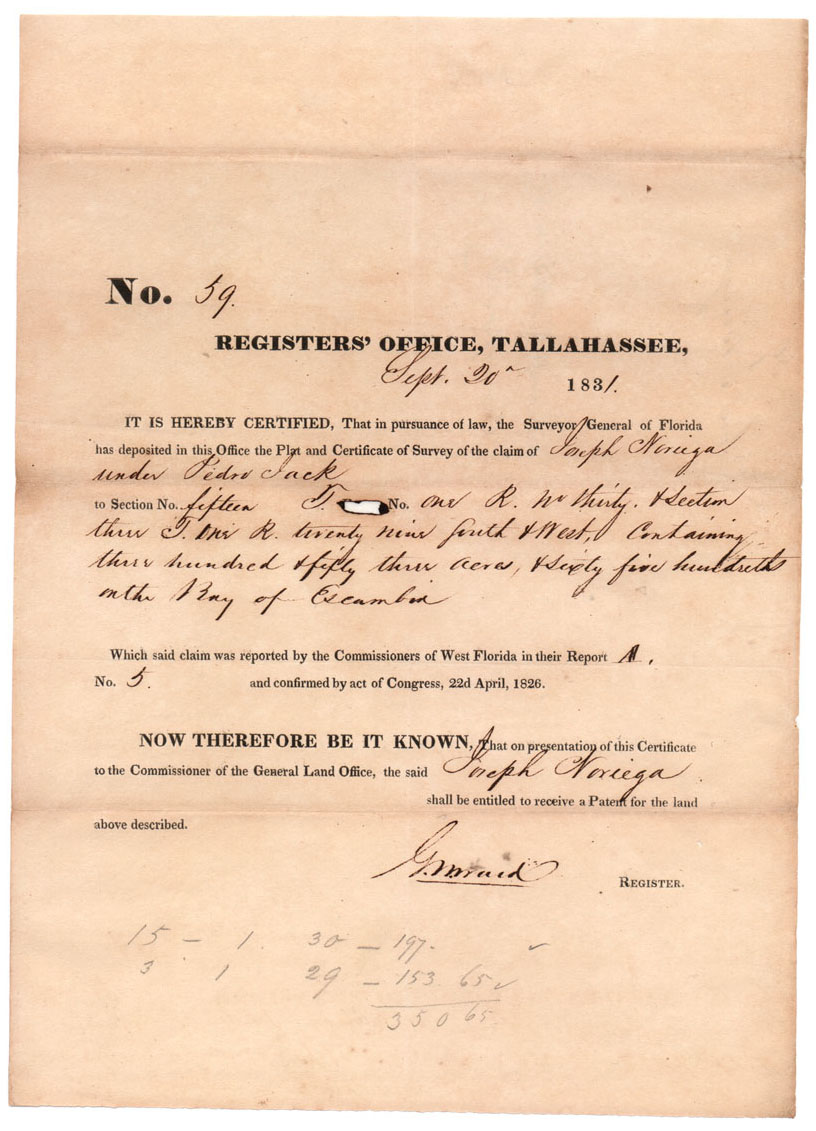 No. 59.
REGISTERS' OFFICE, TALLAHASSEE,
Sept. 20 1831.
IT IS HEREBY CERTIFIED, That in pursuance of law, the Surveyor General of Florida
has deposited in this Office the Plat and Certificate of Survey of the claim of Joseph Noriega
under Pedro Jack
to Section No. fifteen T. No. one R. No thirty. & Section
three T. one R. twenty nine South & West, Containing
three hundred & fifty three acres, & sixty five hundredths
on the Bay of Escambia
Which said claim was reported by the Commissioners of West Florida in their Report A.
No. 5. and confirmed by act of Congress, 22d April, 1826.
NOW THEREFORE BE IT KNOWN, That on presentation of this Certificate
to the Commissioner of the General Land Office, the said Joseph Noriega
shall be entitled to receive a Patent for the land
above described.
REGISTER.
15 - 1. 30 - 197.
3 1 29 - 153.65
350 65